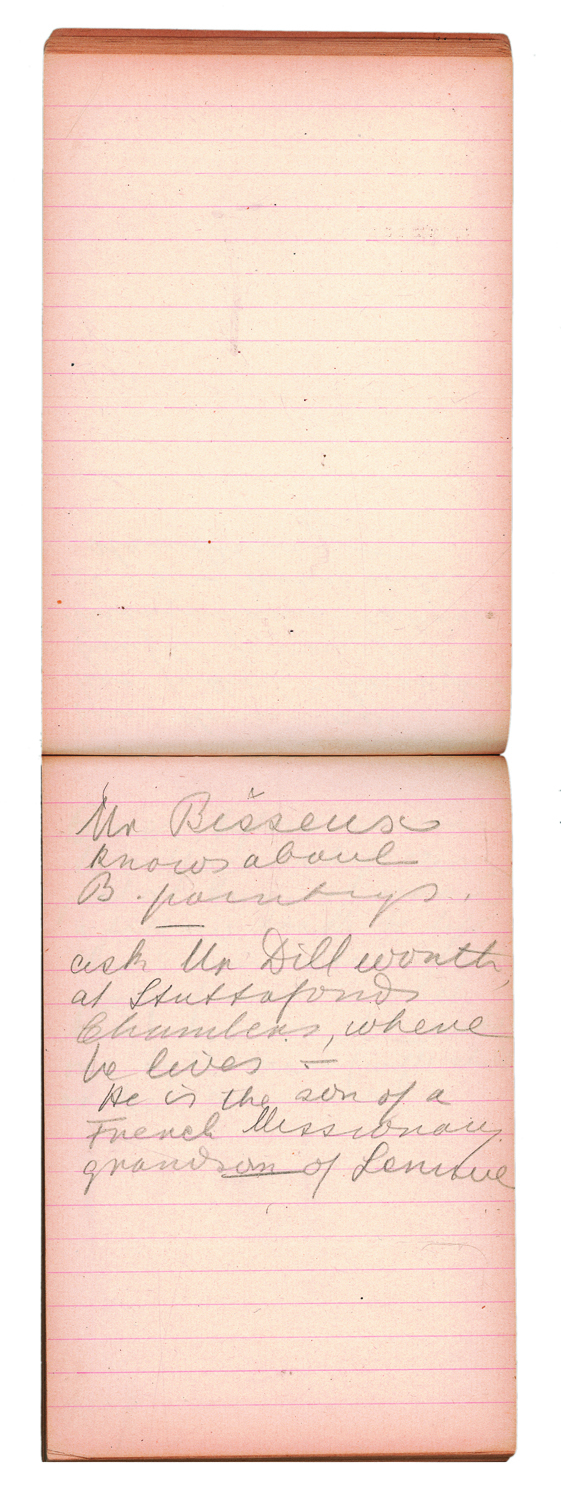 Mr Bisseux
knows about
B. paintings.
ask Mr Dillworth,
at Stuttafords
Chambers, where
he lives —
He is the son of a
French Missionary
grandson of